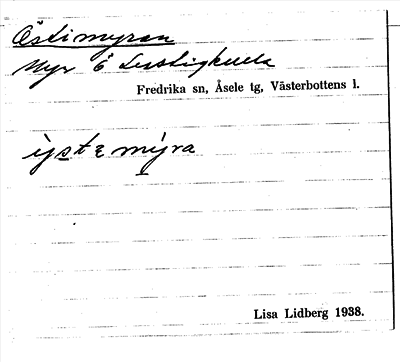 Östimyran
Myr Ö Lustigkulla
Fredrika sn, Åsele tg, Västerbottens l.
Lisa Lidberg 1938.